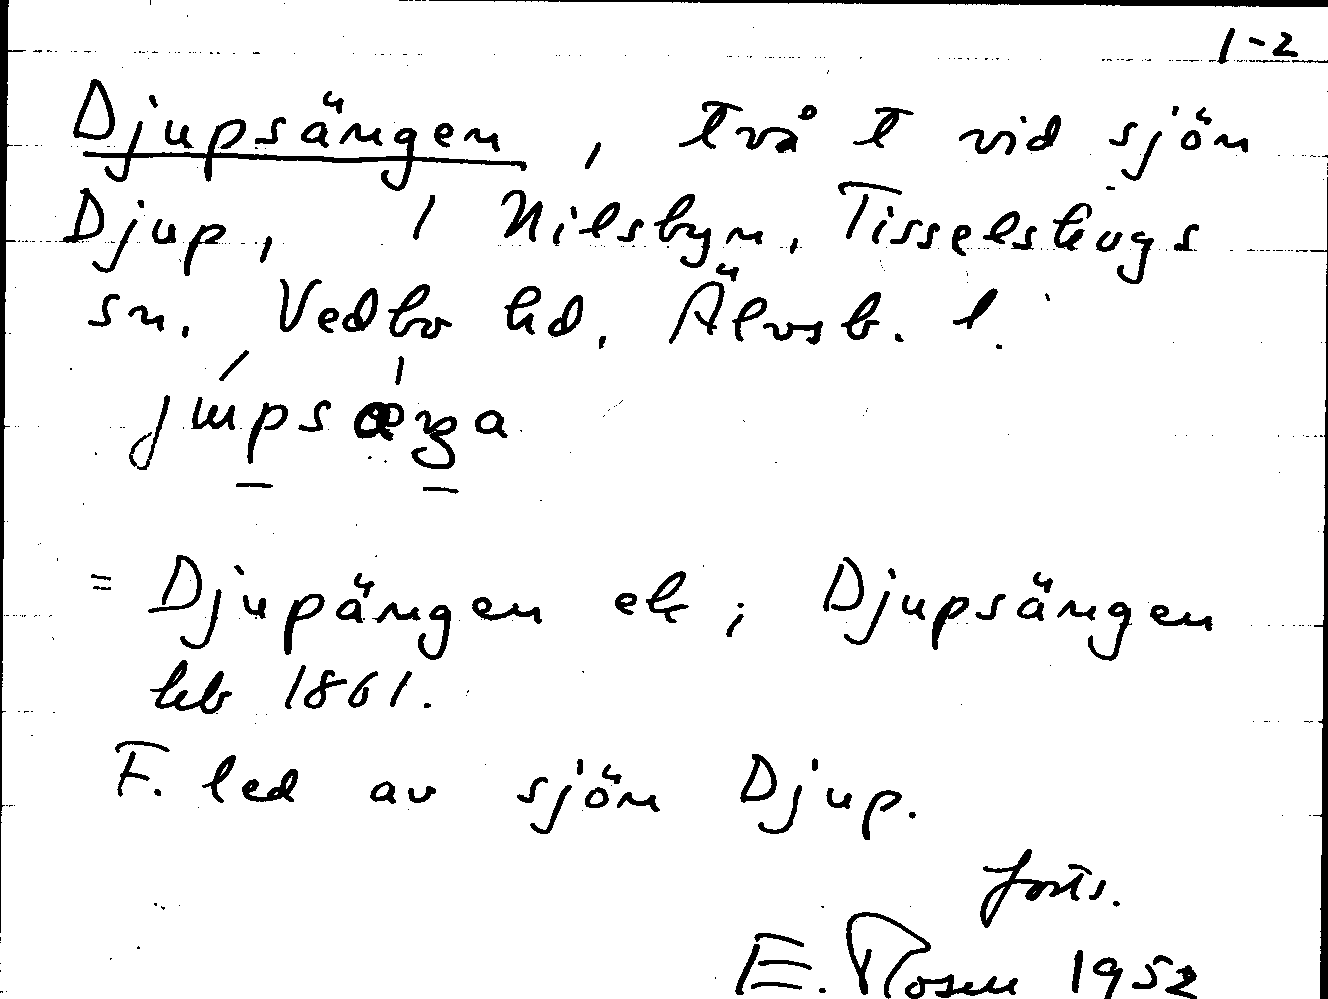 1-2
Djupsängen, två t vid sjön
Djup, 1 Nilsbyn, Tisselskogs
sn. Vedbo hd. Älvsb. l.
= Djupängen ek; Djupsängen
hb 1861.
F. led av sjön Djup.
forts.
E. Rosén 1952